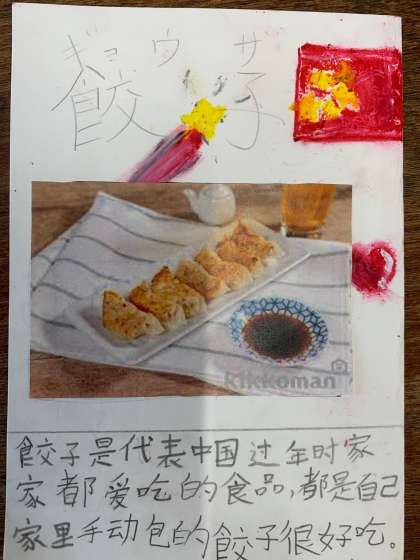 ギョウザ
餃子
kikkoman
餃子是代表中国过年时家
家都爱吃的食品,都是自己
家里手动包的餃子很好吃。